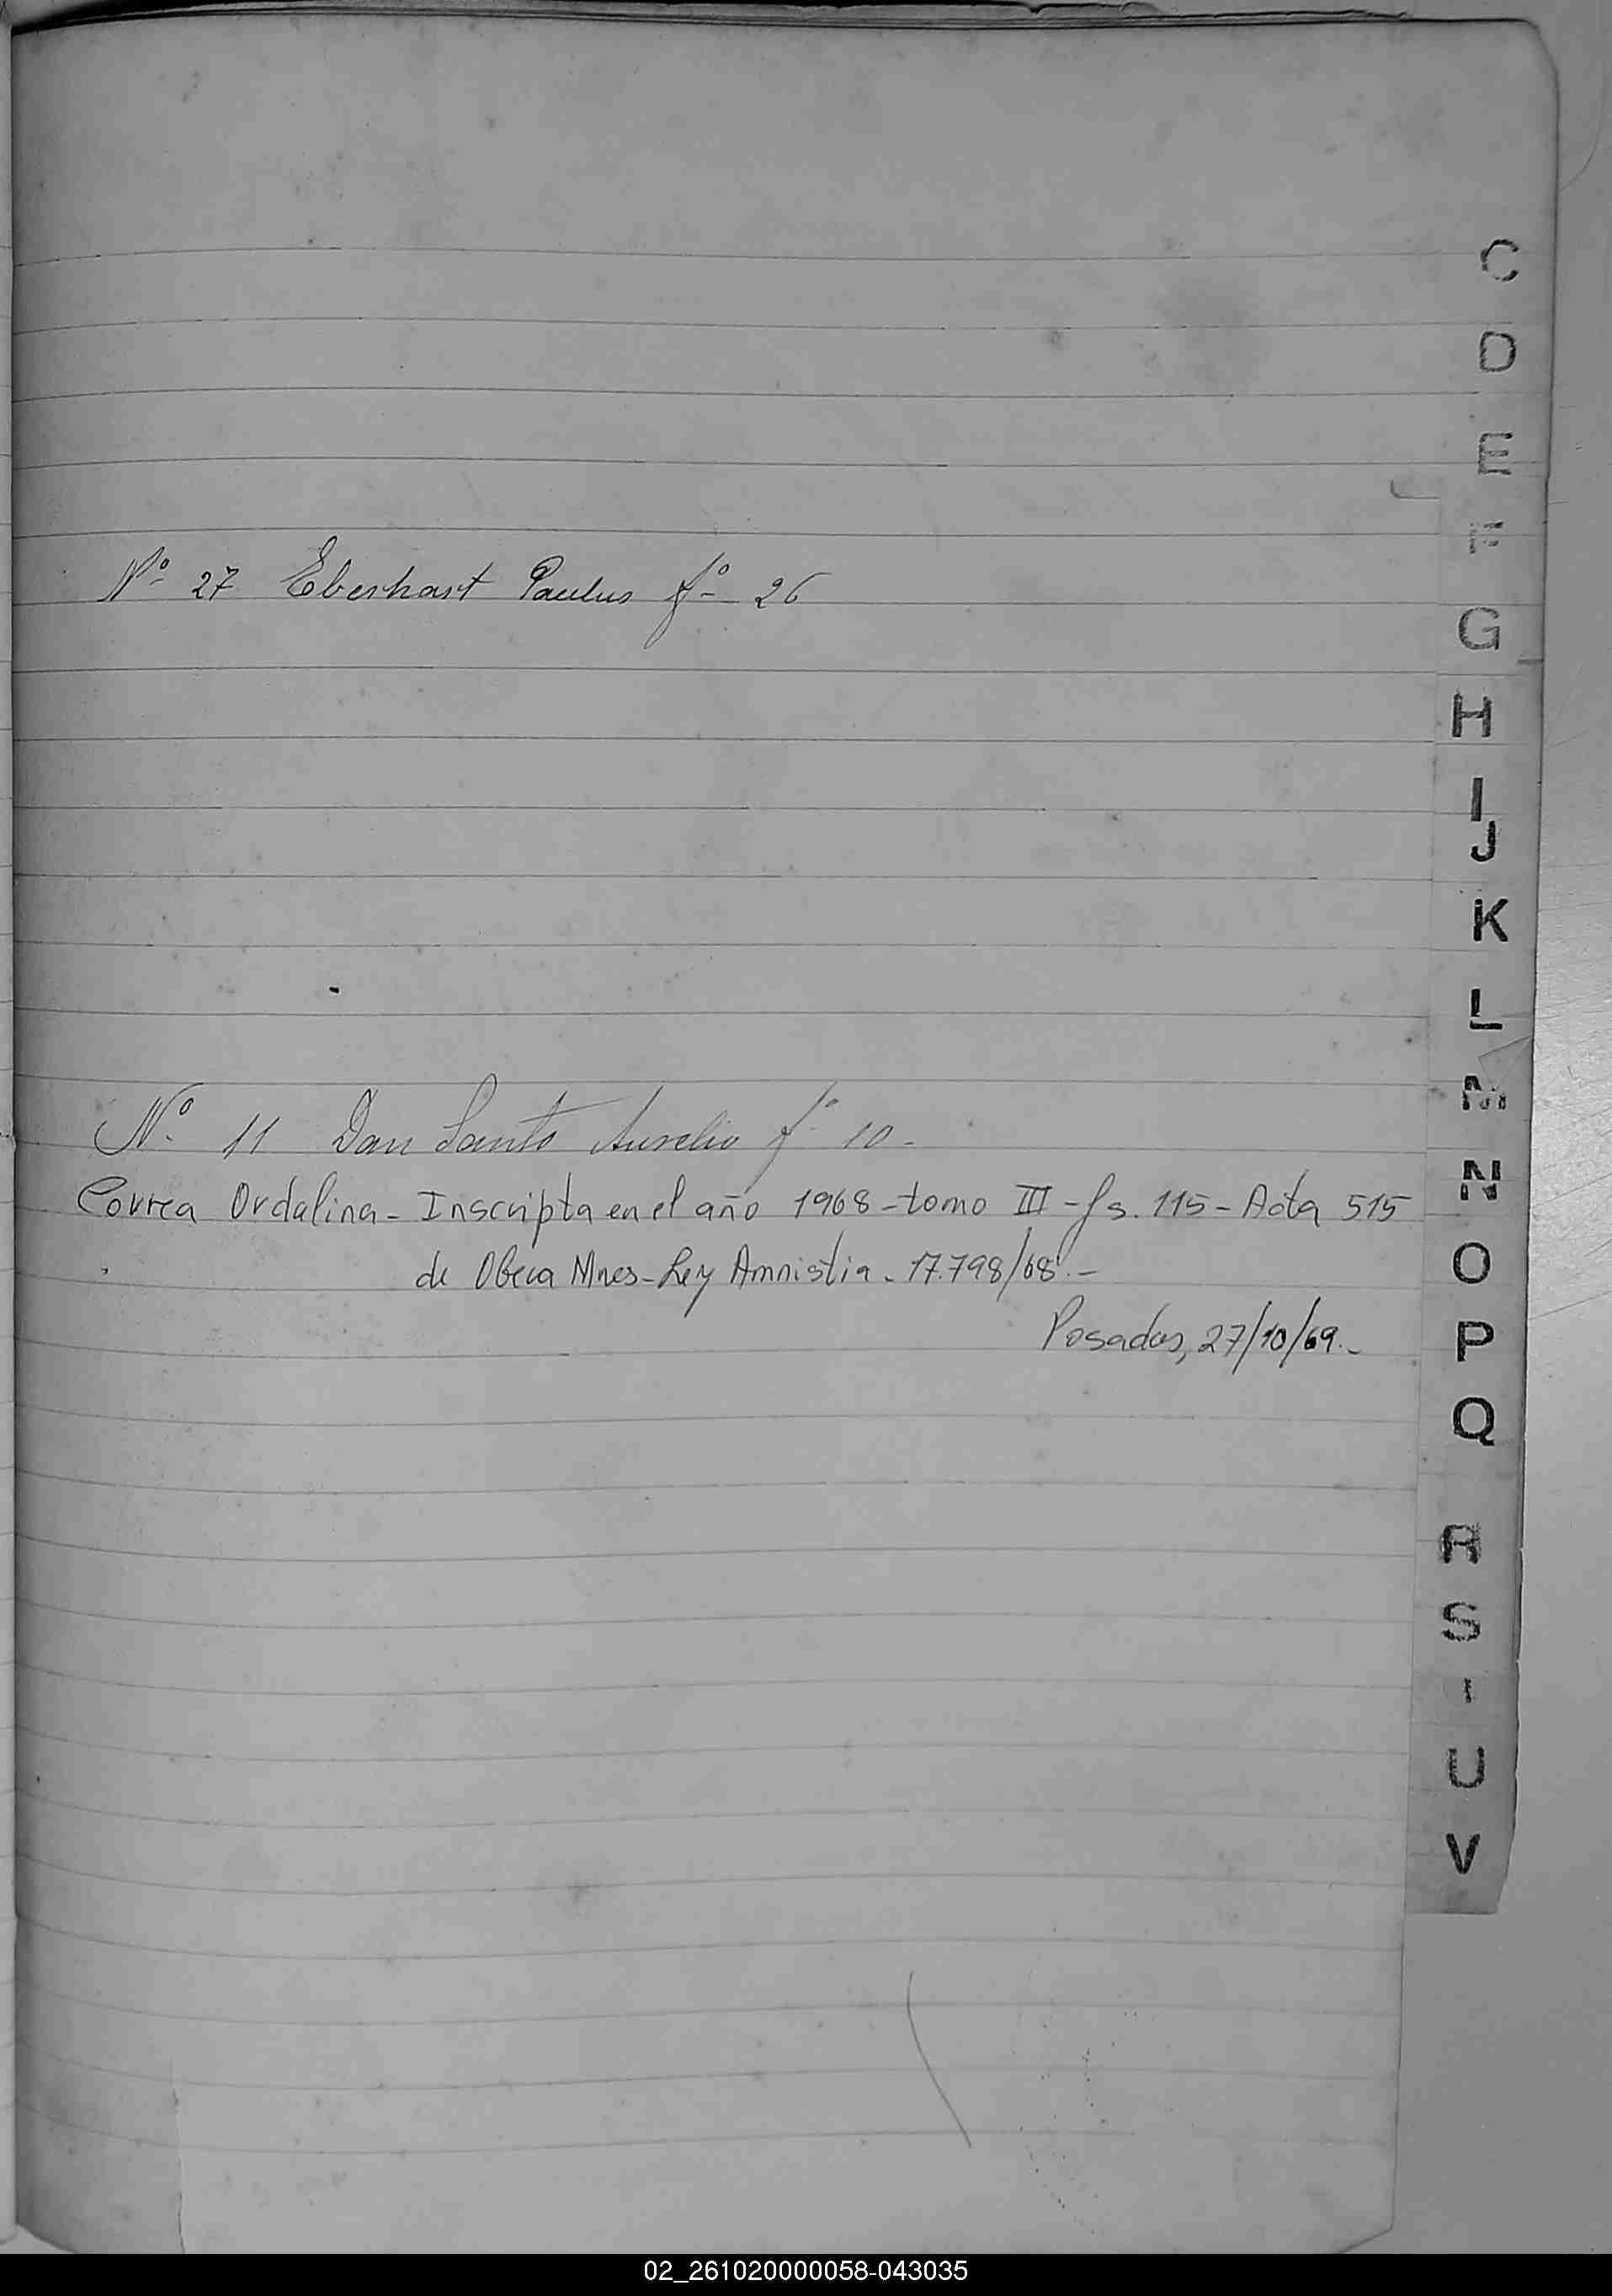 Nº 27 Eberhart Paulus fº 26
Nº 11 Dan Santo Aurelio fº 10-
Correa Ordalina - Inscripta en el año 1968 - tomo III - fs. 115 - Acta 515
de Obera Mnes - Ley Amnistia - 17.798/68.-
Posadas, 27/10/69.-
C
D
E
F
G
H
I
J
K
L
M
N
O
P
Q
R
S
U
V
02_261020000058-043035